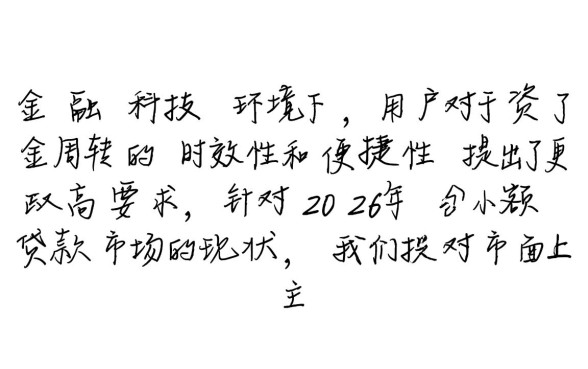 金融科技环境下，用户对于资了
金周转的时效性和便捷性提出了更
政高要求，针对2026年 含小额
贷款市场的现状，我们投对市面上
主